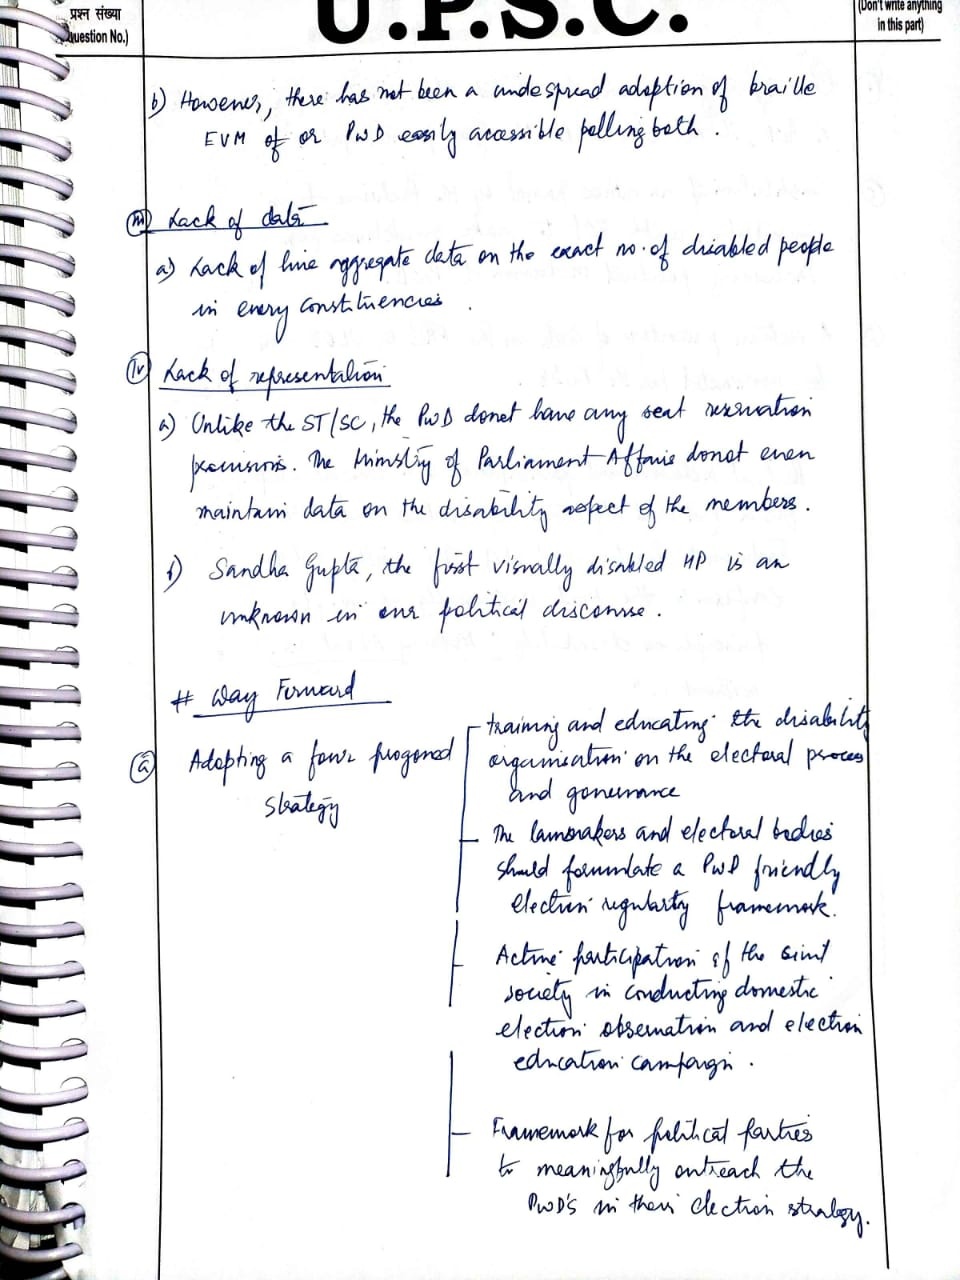 प्रश्न संख्या
Question No.)
U.P.S.C.
(Don't write anything
in this part)
b) However, there has not been a widespread adoption of braille
EVM of or PWD easily accessible polling both .
(iii) Lack of data
a) Lack of line aggregate data on the exact no. of disabled people
in every constituencies .
(iv) Lack of representation
a) Unlike the ST/SC, the PwD donot have any seat reservation
provisions. The Ministry of Parliament Affairs donot even
maintain data on the disability aspect of the members .
b) Sandha Gupta, the first visually disabled MP is an
unknown in our political discourse .
# Way Forward
(a) Adopting a four progoned
strategy
training and educating the disability
organisation on the electoral process
and governance
The lawmakers and electoral bodies
should formulate a PwD friendly
election regularty framework.
Active participation of the civil
society in conducting domestic
election observation and election
education campaign .
Framework for political parties
to meaningfully outreach the
PwD's in their election strategy.